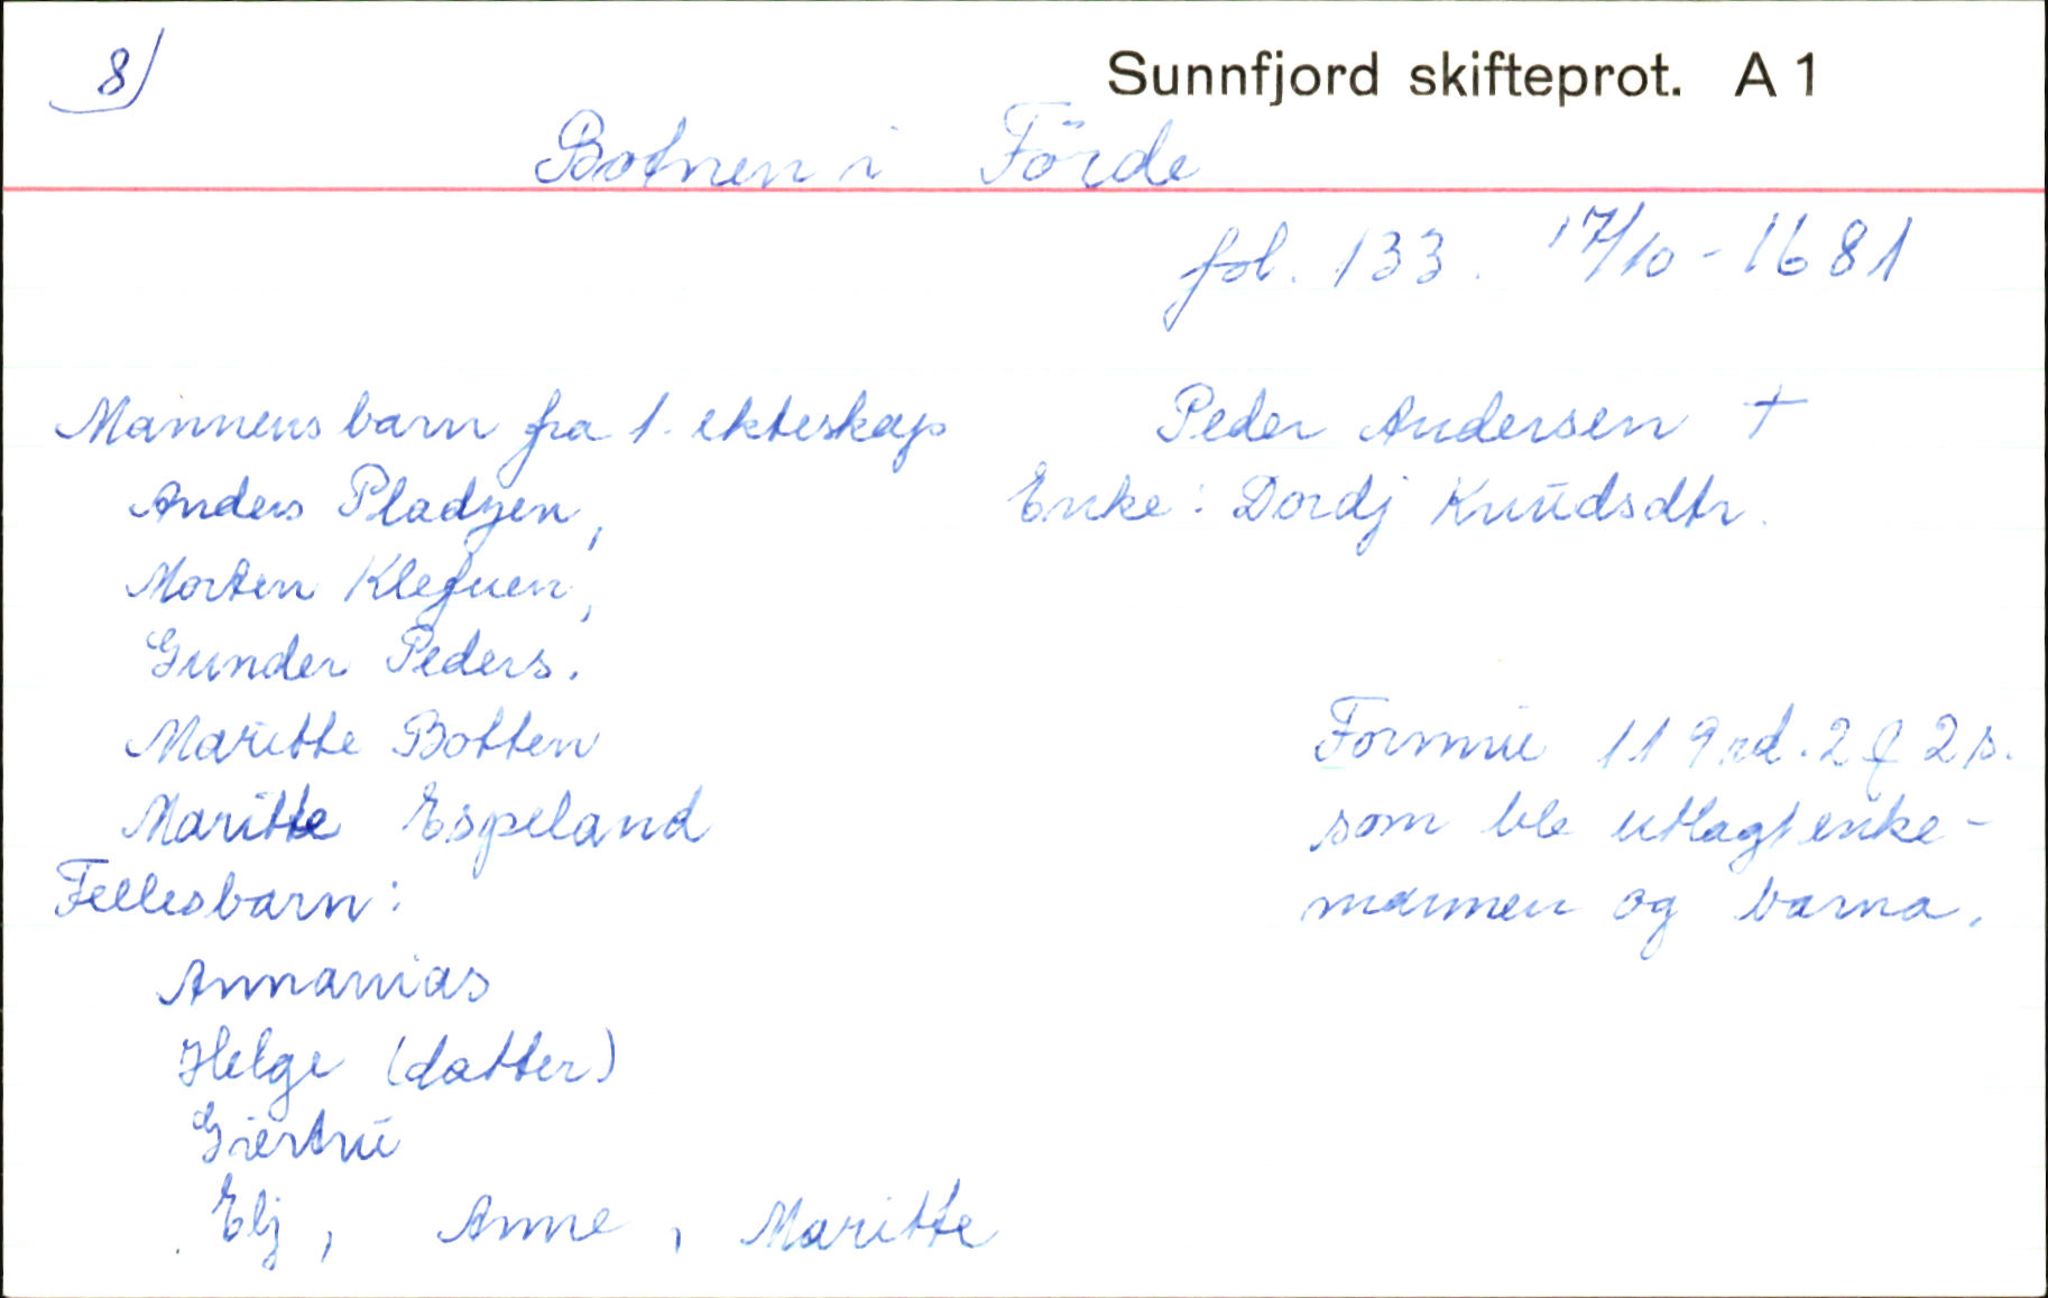 8)
Sunnfjord skifteprot. A 1
Botnen i Förde
fol. 133. 17/10 - 1681
Mannens barn fra 1. ekteskap
Anders Pladzen,
Morten Klefuen,
Gunder Peders.
Maritte Botten
Maritte Espeland
Fellesbarn:
Annanias
Helge (datter)
Giertrŭ
Elj, Anne, Maritte
Peder Andersen †
Enke: Dordj Knŭdsdtr.
Formŭe 119 rd. 2 2 s.
som ble utlagt enke-
mannen og barna.